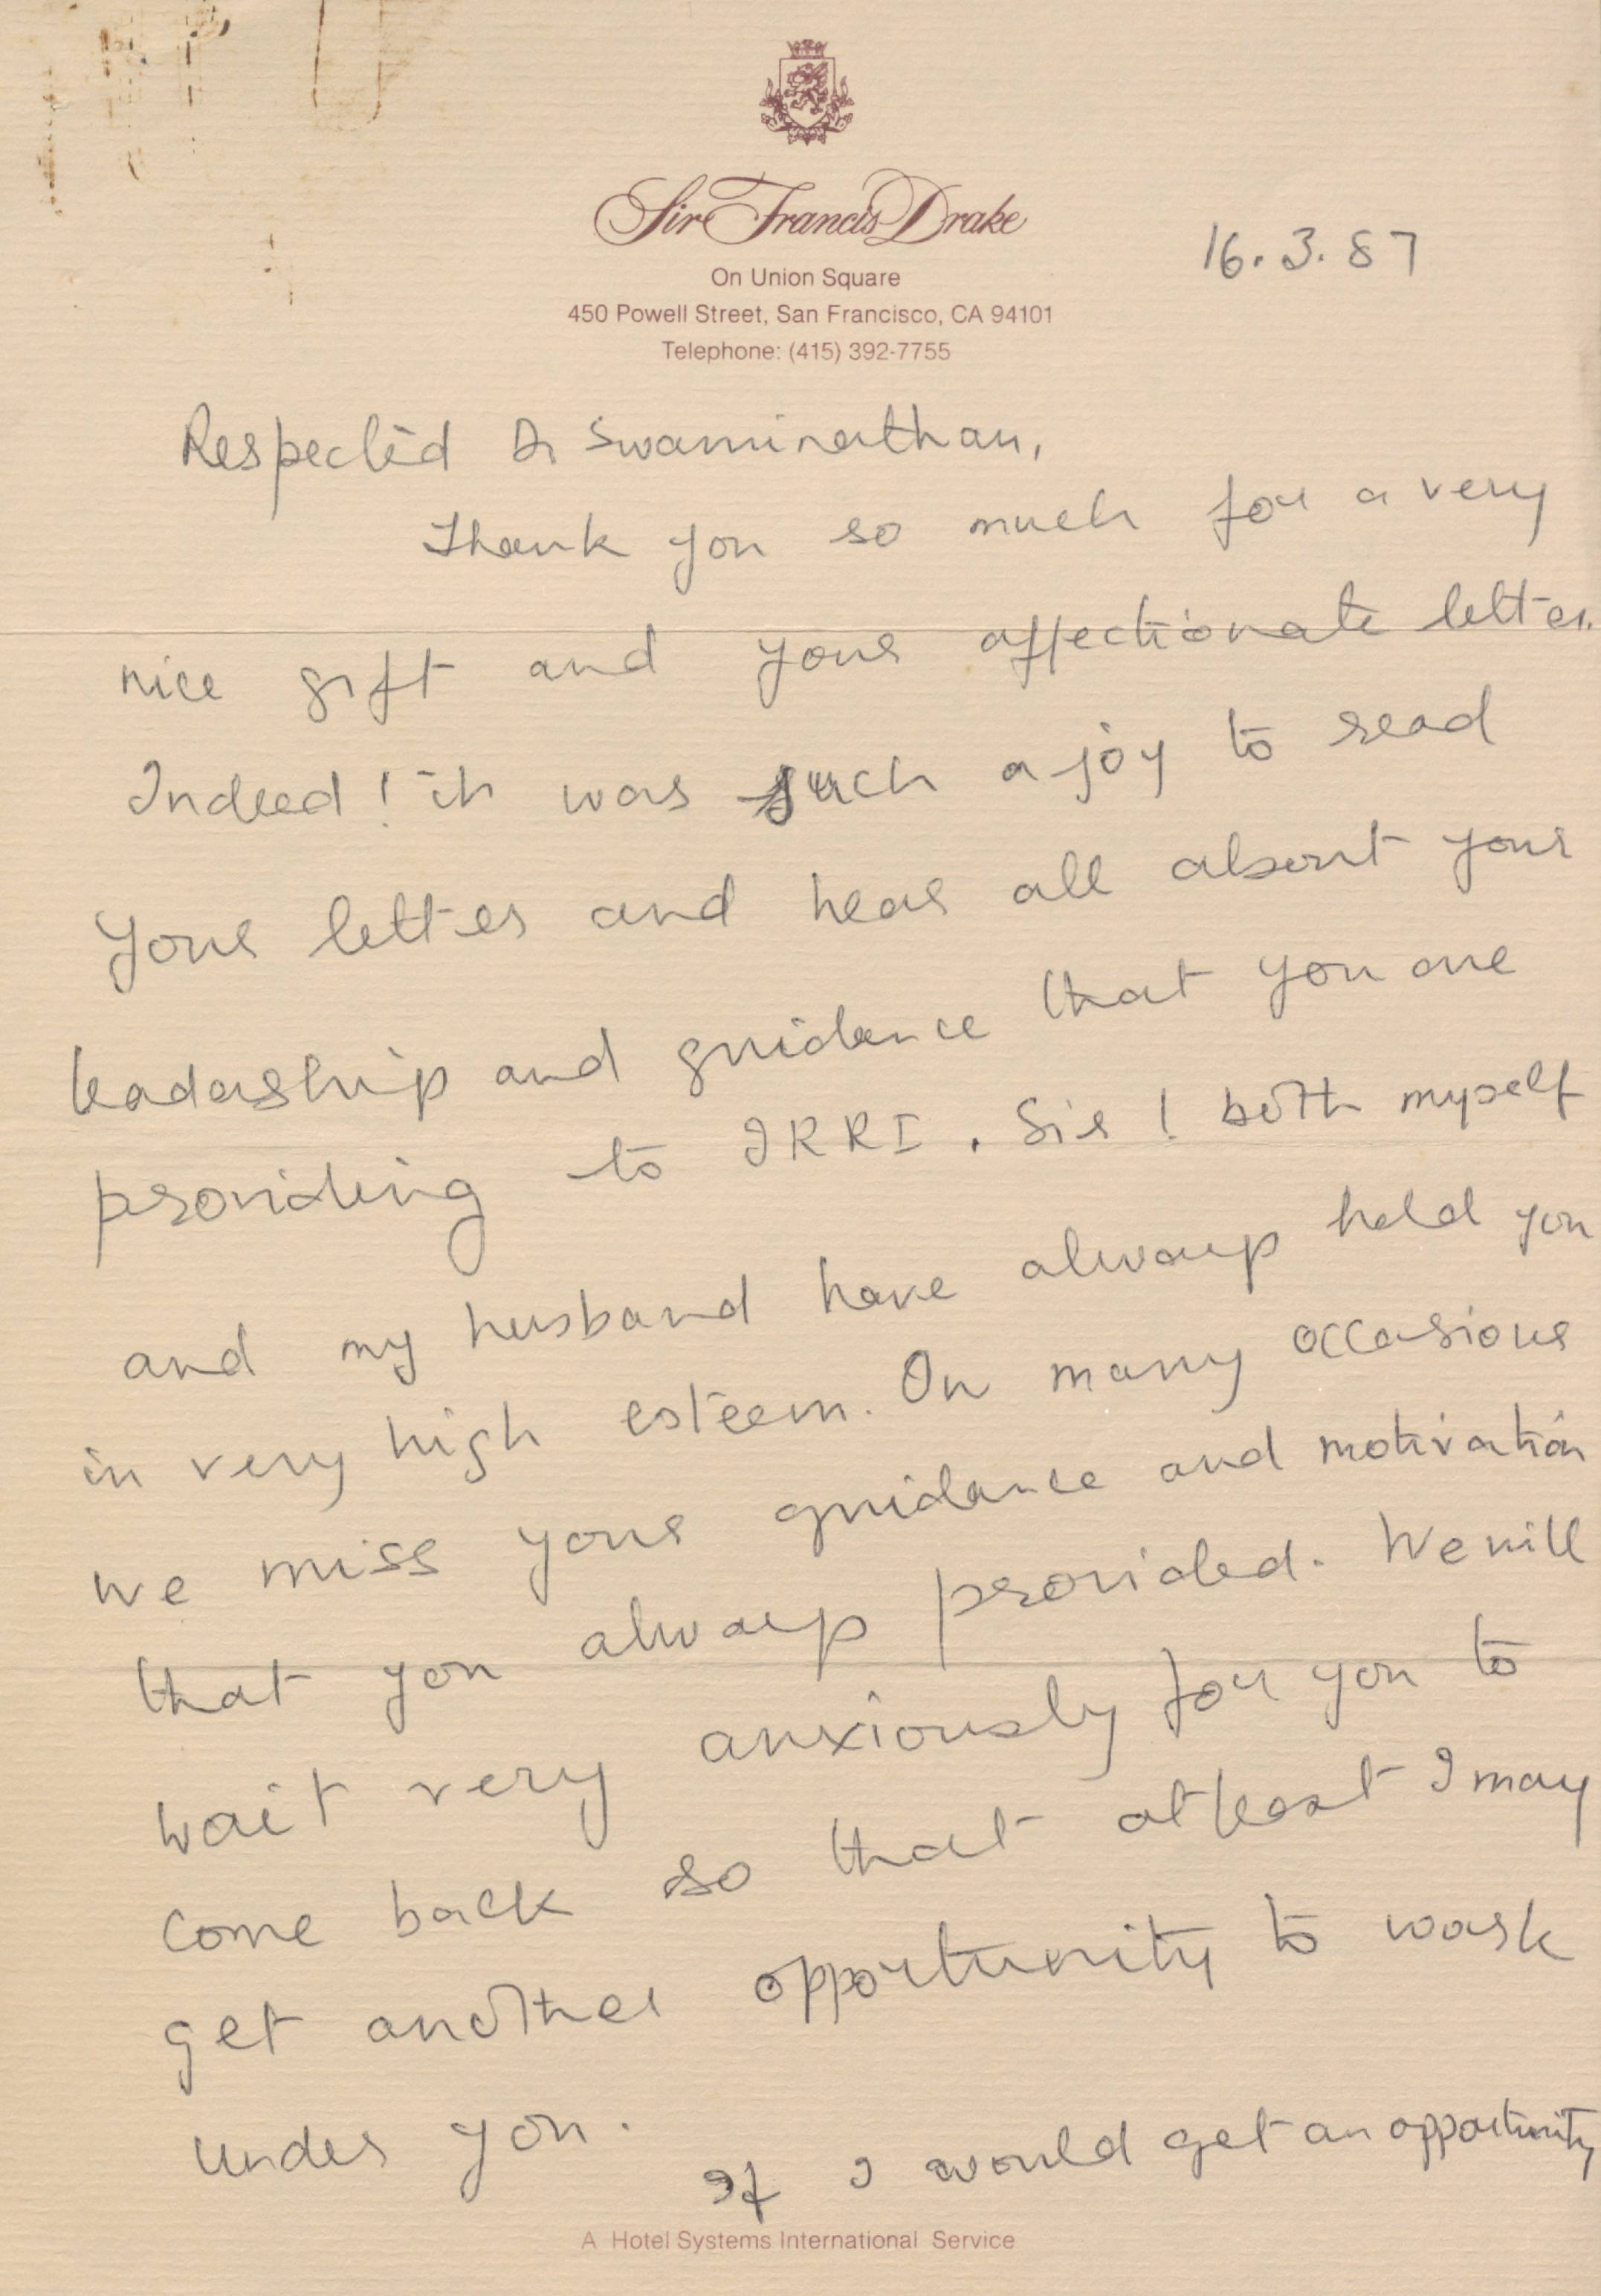 Sir Francis Drake
On Union Square
450 Powell Street, San Francisco, CA 94101
Telephone: (415) 392-7755
16.3.87
Respected Dr Swaminathan,
Thank you so much for a very
nice gift and your affectionate letter.
Indeed! it was such a joy to read
your letter and hear all about your
leadership and guidance that you are
providing to IRRI. Sir! both myself
and my husband have always held you
in very high esteem. On many occasions
we miss your guidance and motivation
that you always provided. We will
wait very anxiously for you to
come back so that atleast I may
get another opportunity to work
under you.
If I would get an opportunity
A Hotel Systems International Service